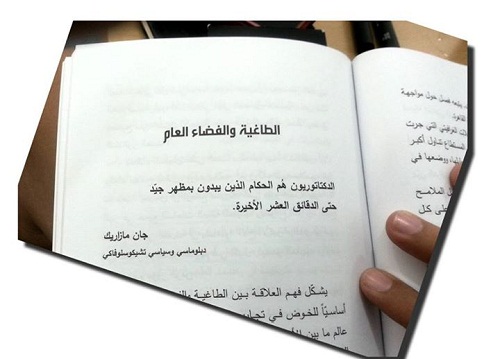 الطاغية والفضاء العام
الدكتاتوريون هُم الحكام الذين يبدون بمظهر جيّد
حتى الدقائق العشر الأخيرة.
جان مازاريك
دبلوماسي وسياسي تشيكوسلوفاكي
يشكّل فهم العلاقة بين الطاغية
أساسيّاً للخوض في
عالم ما بين
فصل حول مواجهة
القاهرة.
التي جرت
تتناول أكبر
ووضعها في
الملامح
كل